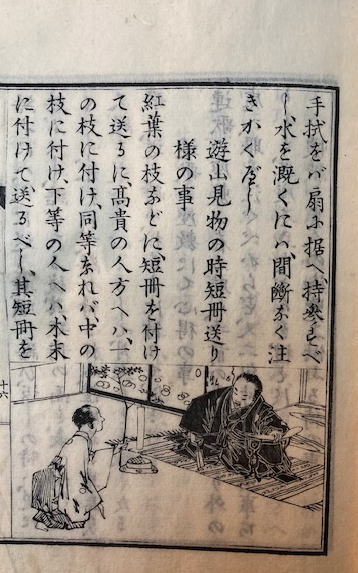 手拭をバ扇に据へ、持參すべ
し、水を漑ぐにハ間斷なく注
きかくべし
遊山見物の時短冊送り
様の事
紅葉の枝などに、短冊を付け
て送るに、高貴の人方へハ、一
の枝に付け、同等なれバ、中の
枝に付け、下等の人へハ、木末
に付けて送るべし、其短冊を
十六